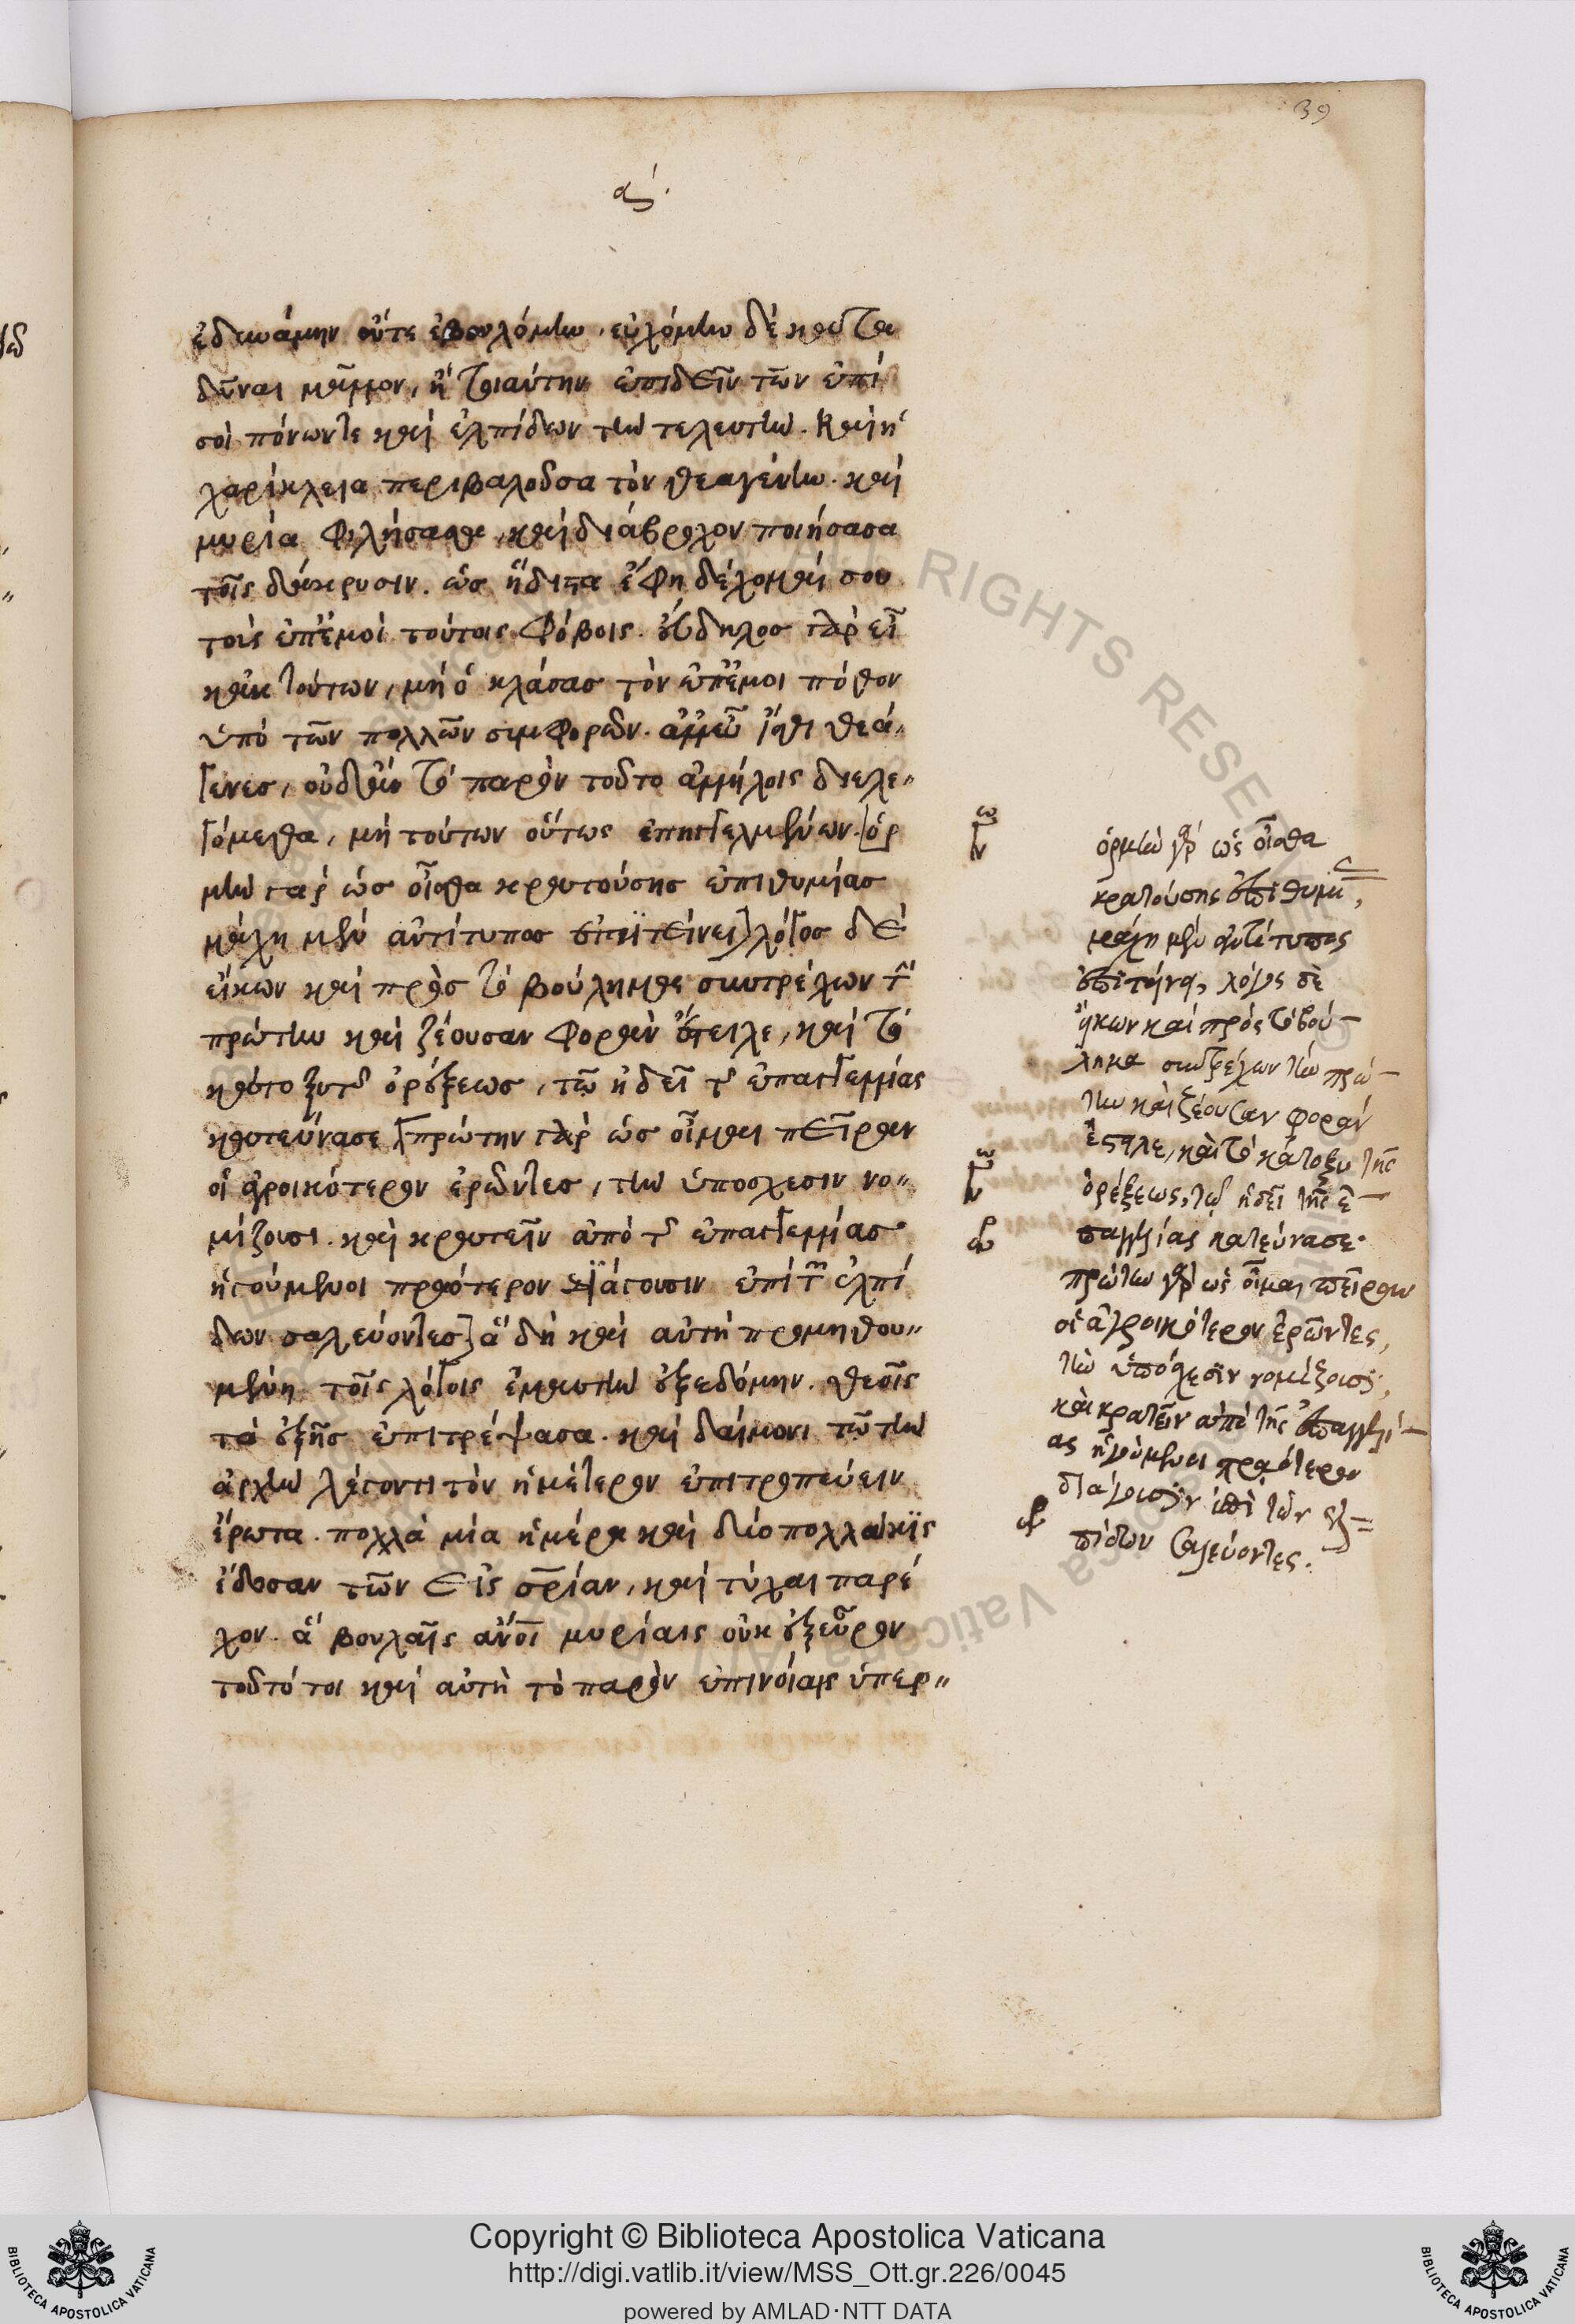 39
αʹ.
ἐδυνάμην οὔτε ἐβουλόμην, εὐχόμην δὲ κατα
δῦναι μᾶλλον, ἢ τοιαύτην ἐπιδεῖν τῶν ἐπί
σοὶ πόνων τε καὶ ἐλπίδων τὴν τελευτήν. Καὶ ἡ
χαρίκλεια περιβαλοῦσα τὸν θεαγένην. καὶ
μυρία φιλήσασα, καὶ διάβροχον ποιήσασα
τοῖς δάκρυσιν. ὡσ ἥδιστα ἔφη δέχομαί σου
τοὺς ἐπ' ἐμοὶ τούτοις φόβοις. εὔδηλοσ γὰρ εἶ
κἀκ τούτων, μὴ ὀκλάσασ τὸν ἐπ' ἐμοι πόθον
ὑπὸ τῶν πολλῶν συμφορῶν. ἀλλ' εὖ ἴσθι θεά„
γενεσ, οὐδ' ἂν τὸ παρὸν τοῦτο ἀλλήλοις διελε„
γόμεθα, μὴ τούτων οὕτως ἐπηγγελμένων. [ὁρ
μὴν γὰρ ὡσ οἶσθα κρατούσησ ἐπιθυμίασ
μάχη μὲν ἀντίτυποσ ἐπιτείνει] λόγοσ δὲ
εἴκων καὶ πρὸσ τὸ βούλημα συντρέχων τὴν
πρώτην καὶ ζέουσαν φορὰν ἔστειλε, καὶ τὸ
κάτοξυ τῆς ὀρέξεωσ, τῷ ἡδεῖ τῆς ἐπαγγελλίας
κατεύνασε [πρώτην γὰρ ὡσ οἶμαι πεῖραν
οἱ ἀγροικότερον ἐρῶντεσ, τὴν ὑπόσχεσιν νο„
μίζουσι. καὶ κρατεῖν ἀπὸ τῆς ἐπαγγελλίασ
ἡγούμενοι πραότερον διάγουσιν ἐπὶ τῶν ἐλπί
δων σαλεύοντεσ] ἃ δὴ καὶ αὐτὴ προμηθου„
μένη τοῖς λόγοις ἐμαυτὴν ἐξεδόμην. θεοῖς
τὰ ἑξῆσ ἐπιτρέψασα. καὶ δαίμονι τῷ τὴν
ἀρχὴν λέγοντι τὸν ἡμέτερον ἐπιτροπεύειν
ἔρωτα. πολλὰ μία ἡμέρα καὶ δύο πολλάκις
ἔδοσαν τῶν εἰς σωτηρίαν, καὶ τύχαι παρέ
χον. ἃ βουλαῖς ἄνθρωποι μυρίαις οὐκ ἐξεῦρον
τοῦτό τοι καὶ αὐτὴ τὸ παρὸν ἐπινοίαις ὑπερ„
ὁρμὴν γὰρ ὡς οἶσθα
κρατούσης ἐπιθυμί
μάχη μὲν ἀντίτυπος
ἐπιτείνει, λόγος δὲ
ἥκων καὶ πρὸς τὸ βού–
λημα συντρέχων τὴν πρώ–
την καὶ ζέουσαν φορὰν
ἔστηλε, καὶ τὸ κάτοξυ τῆς
ὀρέξεως, τῷ ἡδεῖ τῆς ἐ–
παγγελίας κατεύνασε.
πρώτην γὰρ ὡς οἶμαι πεῖραν
οἱ ἀγροικότερον ἐρῶντες,
τὴν ὑπόσχεσιν νομίζουσι,
καὶ κρατεῖν ἀπὸ τῆς ἐπαγγελί–
ας ἡγούμενοι πραότερον
διάγουσιν ἐπὶ τῶν ἐλ=
πίδων σαλεύοντες.
Copyright © Biblioteca Apostolica Vaticana
http://digi.vatlib.it/view/MSS_Ott.gr.226/0045
powered by AMLAD·NTT DATA